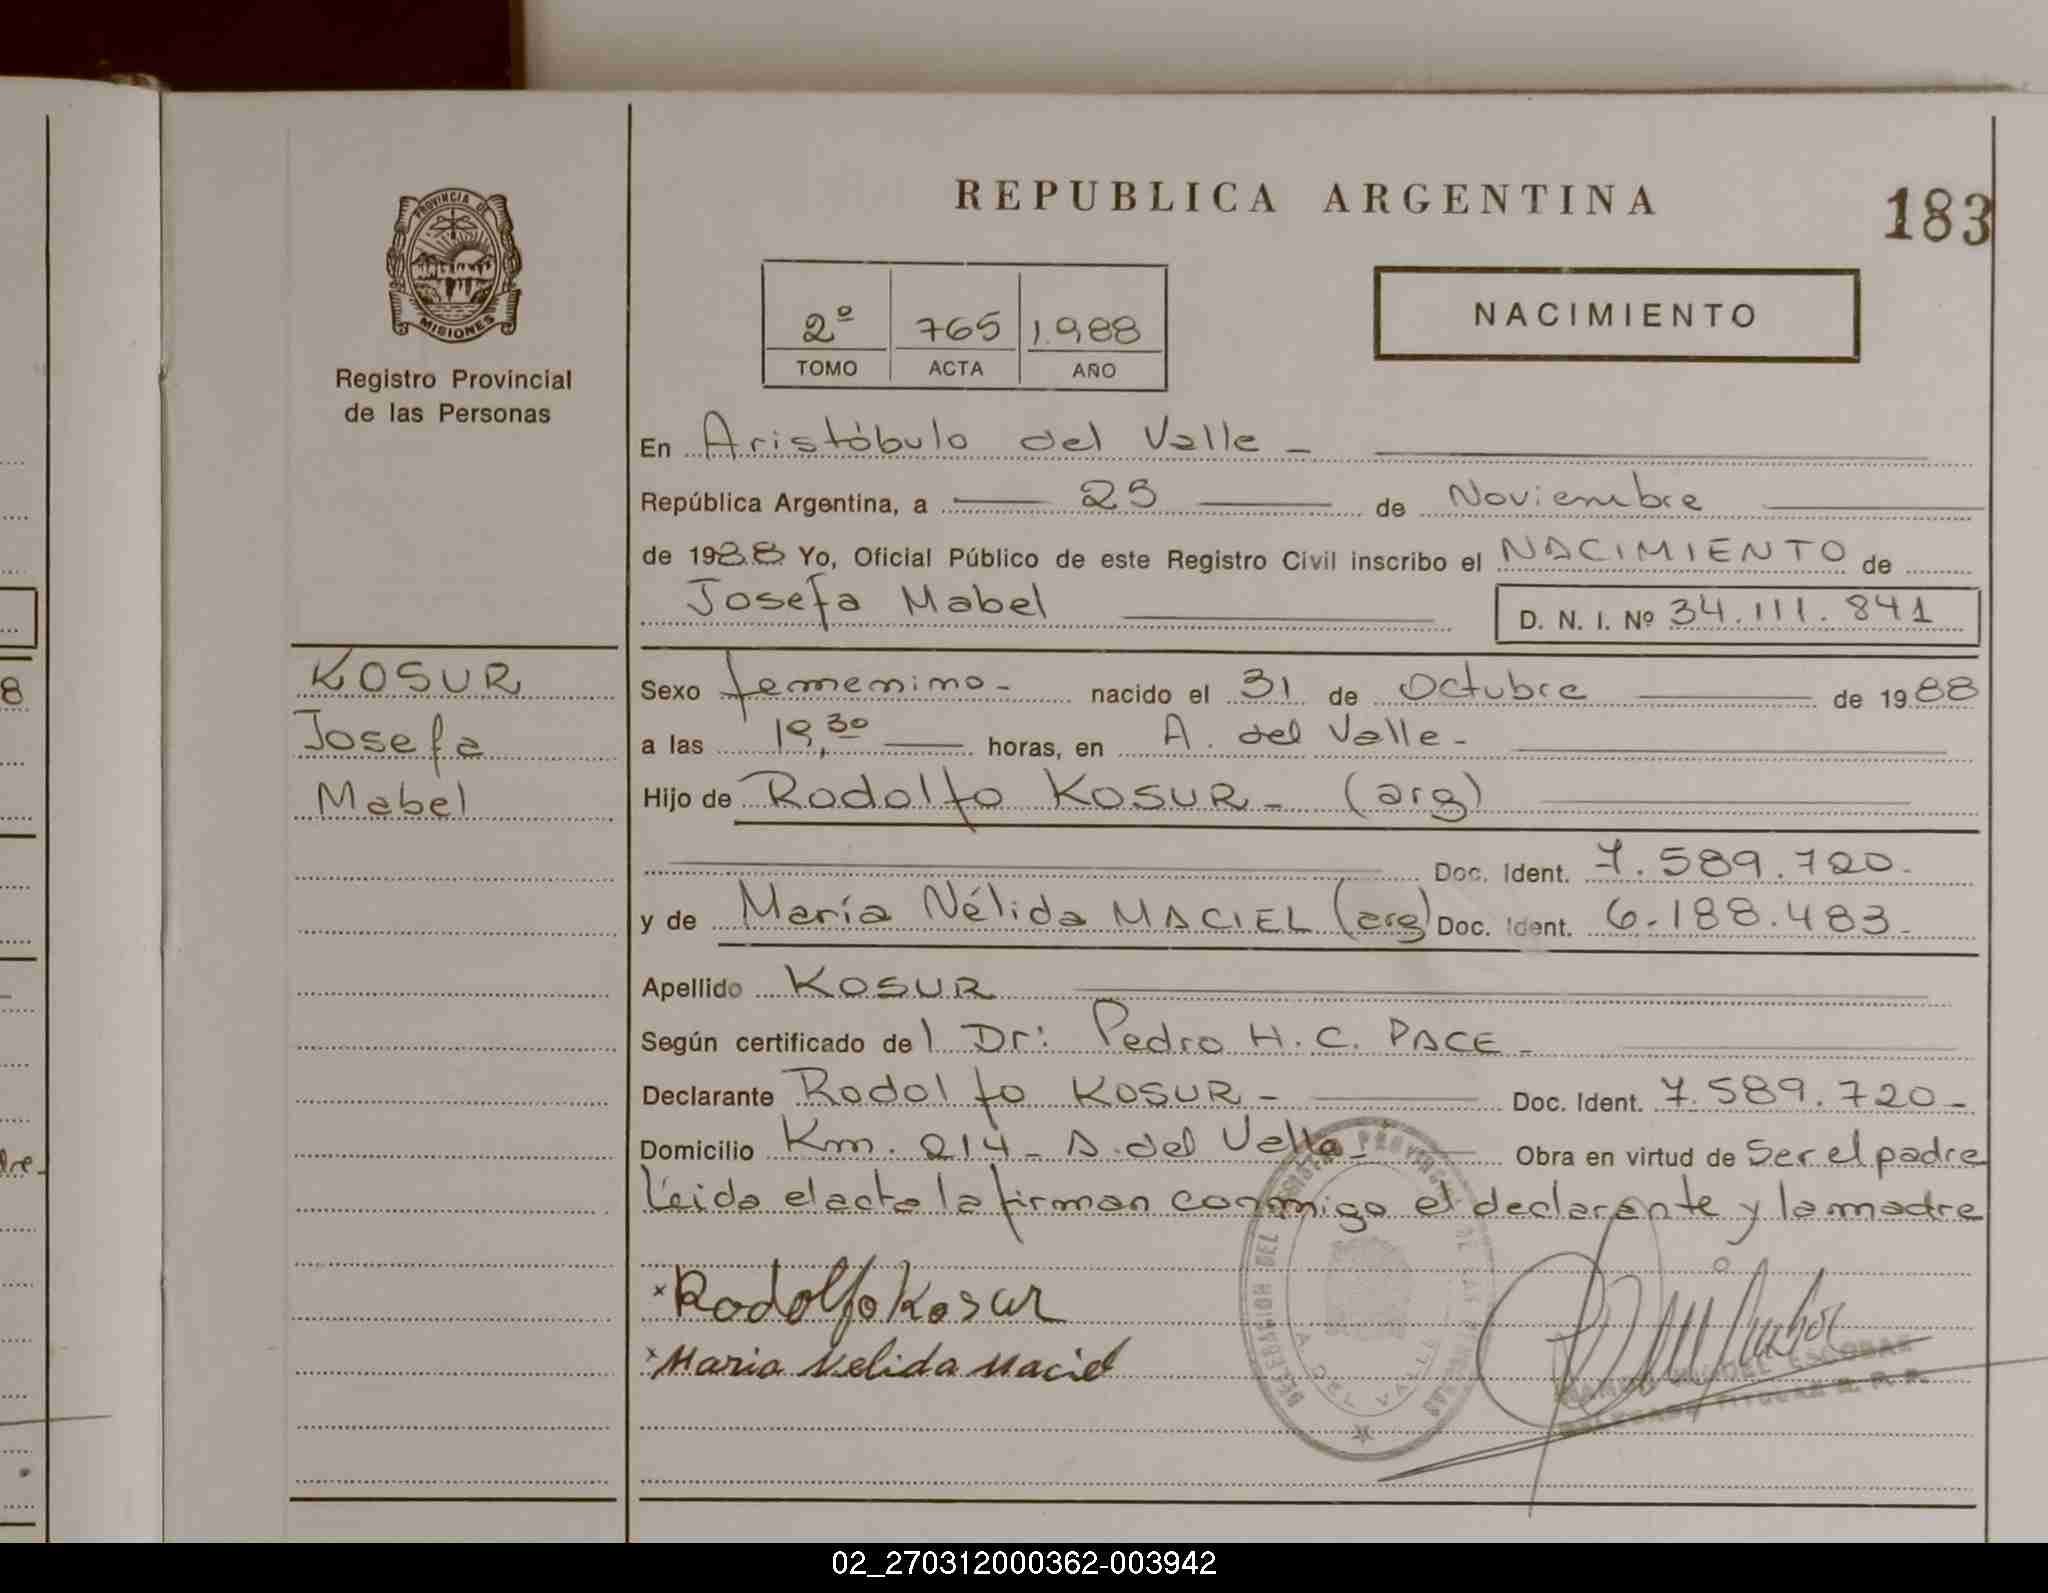 REPUBLICA ARGENTINA
183
PROVINCIA DE
MISIONES
Registro Provincial
de las Personas
2º 765 1.988
TOMO ACTA AÑO
NACIMIENTO
En Aristóbulo del Valle -
República Argentina, a 25 de Noviembre
de 1988 Yo, Oficial Público de este Registro Civil inscribo el NACIMIENTO de
Josefa Mabel D. N. I. Nº 34.111.841
KOSUR
Josefa
Mabel
Sexo femenino - nacido el 31 de Octubre de 1988
a las 19,30 horas, en A. del Valle -
Hijo de Rodolfo KOSUR - (arg)
Doc. Ident. 7.589.720.
y de María Nélida MACIEL (arg) Doc. Ident. 6.188.483 -
Apellido KOSUR
Según certificado del Dr: Pedro H. C. PACE -
Declarante Rodolfo KOSUR - Doc. Ident. 7.589.720 -
Domicilio Km. 214 - A. del Valle - Obra en virtud de Ser el padre
Leida el acta la firman conmigo el declarante y la madre
x Rodolfo Kosur
x Maria Nelida Maciel
A. DEL VALLE
ESCOBAR
TITULAR R. P. P.
8
dre -
02_270312000362-003942